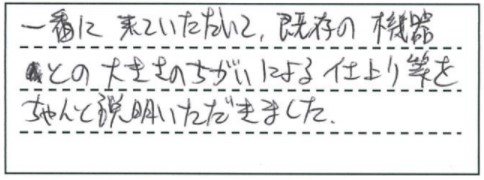 一番に来ていただいて、既存の機器
との大きさのちがいによる仕上り等を
ちゃんと説明いただきました.